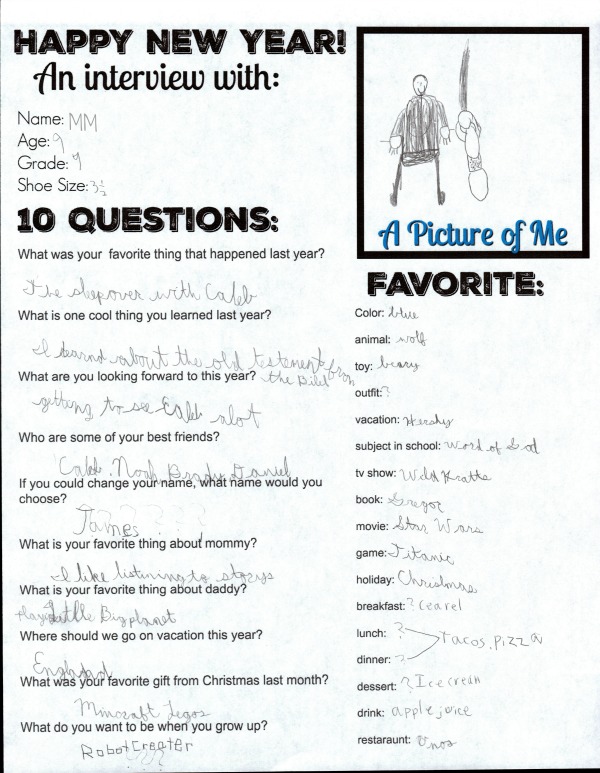 HAPPY NEW YEAR!
An interview with:
Name: MM
Age: 9
Grade: 9
Shoe Size: 3½
10 QUESTIONS:
What was your favorite thing that happened last year?
The sleepover with Caleb
What is one cool thing you learned last year?
I learnd about the old testement from
the Bibel
What are you looking forward to this year?
getting to see Caleb alot
Who are some of your best friends?
Caleb, Noah Brady Daniel
If you could change your name, what name would you
choose?
James ? ? ? ?
What is your favorite thing about mommy?
I like listining to storys
What is your favorite thing about daddy?
Little Bigplanet
Where should we go on vacation this year?
England
What was your favorite gift from Christmas last month?
Mincraft Legos
What do you want to be when you grow up?
Robot Creater
???
A Picture of Me
FAVORITE:
Color: blue
animal: wolf
toy: beary
outfit: ?
vacation: Hershy
subject in school: Word of God
tv show: Wild Kratts
book: Gregor
movie: Star Wars
game: Titanic
holiday: Christmas
breakfast: ? Cearel
lunch: ?
Tacos, Pizza
dinner: ?
dessert: ? Ice cream
drink: apple juice
restaraunt: Unos